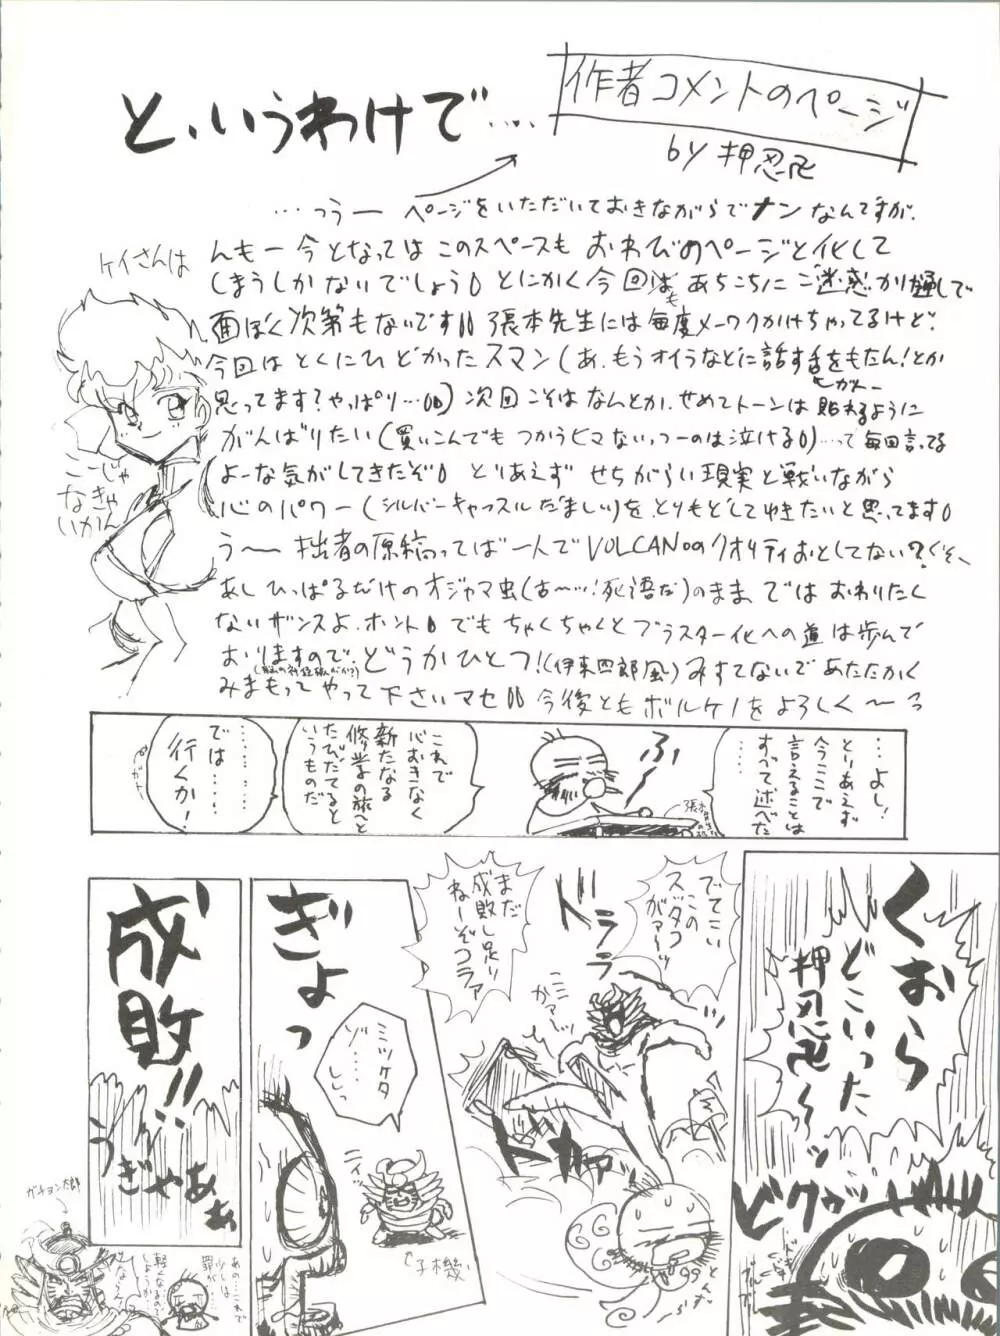 と、いうわけで…‥
作者コメントのページ
by 押忍卍
…つうー ページをいただいておきながらでナンなんですが、
んもー今となってはこのスペースも おわびのページと化して
しまうしかないでしょう とにかく今回も あちこちに ご迷惑かけ通しで
面ぼく次第もないです 張本先生には毎度メーワクかけちゃってるけど、
今回はとくにひどかったスマン(あ、もうオイラなどに話す舌をもたん!とか
思ってます?やっぱり…)次回こそはなんとか、せめてトーンは貼れるように
がんばりたい(買いこんでもつかうヒマないっつーのは泣ける)…って毎回言ってる
よーな気がしてきたぞ とりあえず せちがらい現実と戦いながら
心のパワー(シルバーキャッスルだましい)を、とりもどしてゆきたいと思ってます
う〜 拙者の原稿ってば一人でVOLCANOのクオリティおとしてない?くそ、
あしひっぱるだけのオジャマ虫(古〜ッ!死語だ)のまま、では おわりたく
ないザンスよ、ホント でも ちゃくちゃくとブラスター化への道は歩んで
おりますので、どうかひとつ!(伊東四郎風)みすてないであたたかく
みまもって やって 下さいマセ 今後ともボルケーノをよろしく〜っ
ケイさんは
こーじゃ
なきゃ
いかん
…よし!
とりあえず
今ここで
言えることは
すべて述べた
ふー
これで
心おきなく
新たなる
修学の旅へと
たびだてると
いうものだ
では……
行くか!
くおら
どこいった
押忍卍〜ッ
ビクゥッ
でてこい
このスッタコ
がァーッ
ドララララ
まだ
成敗し足り
ねーぞコラァ
ドカァッ
ぎょっ
ミツケタ
ゾ……
ニィッ
子機
成敗!!
うぎゃあぁ
ガチョン太郎